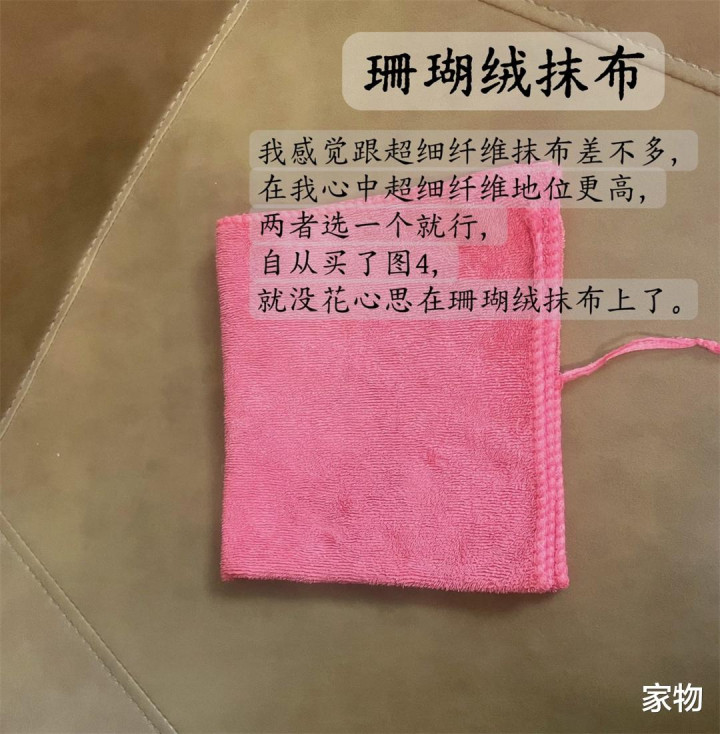 珊瑚绒抹布
我感觉跟超细纤维抹布差不多，
在我心中超细纤维地位更高，
两者选一个就行，
自从买了图4，
就没花心思在珊瑚绒抹布上了。
家物